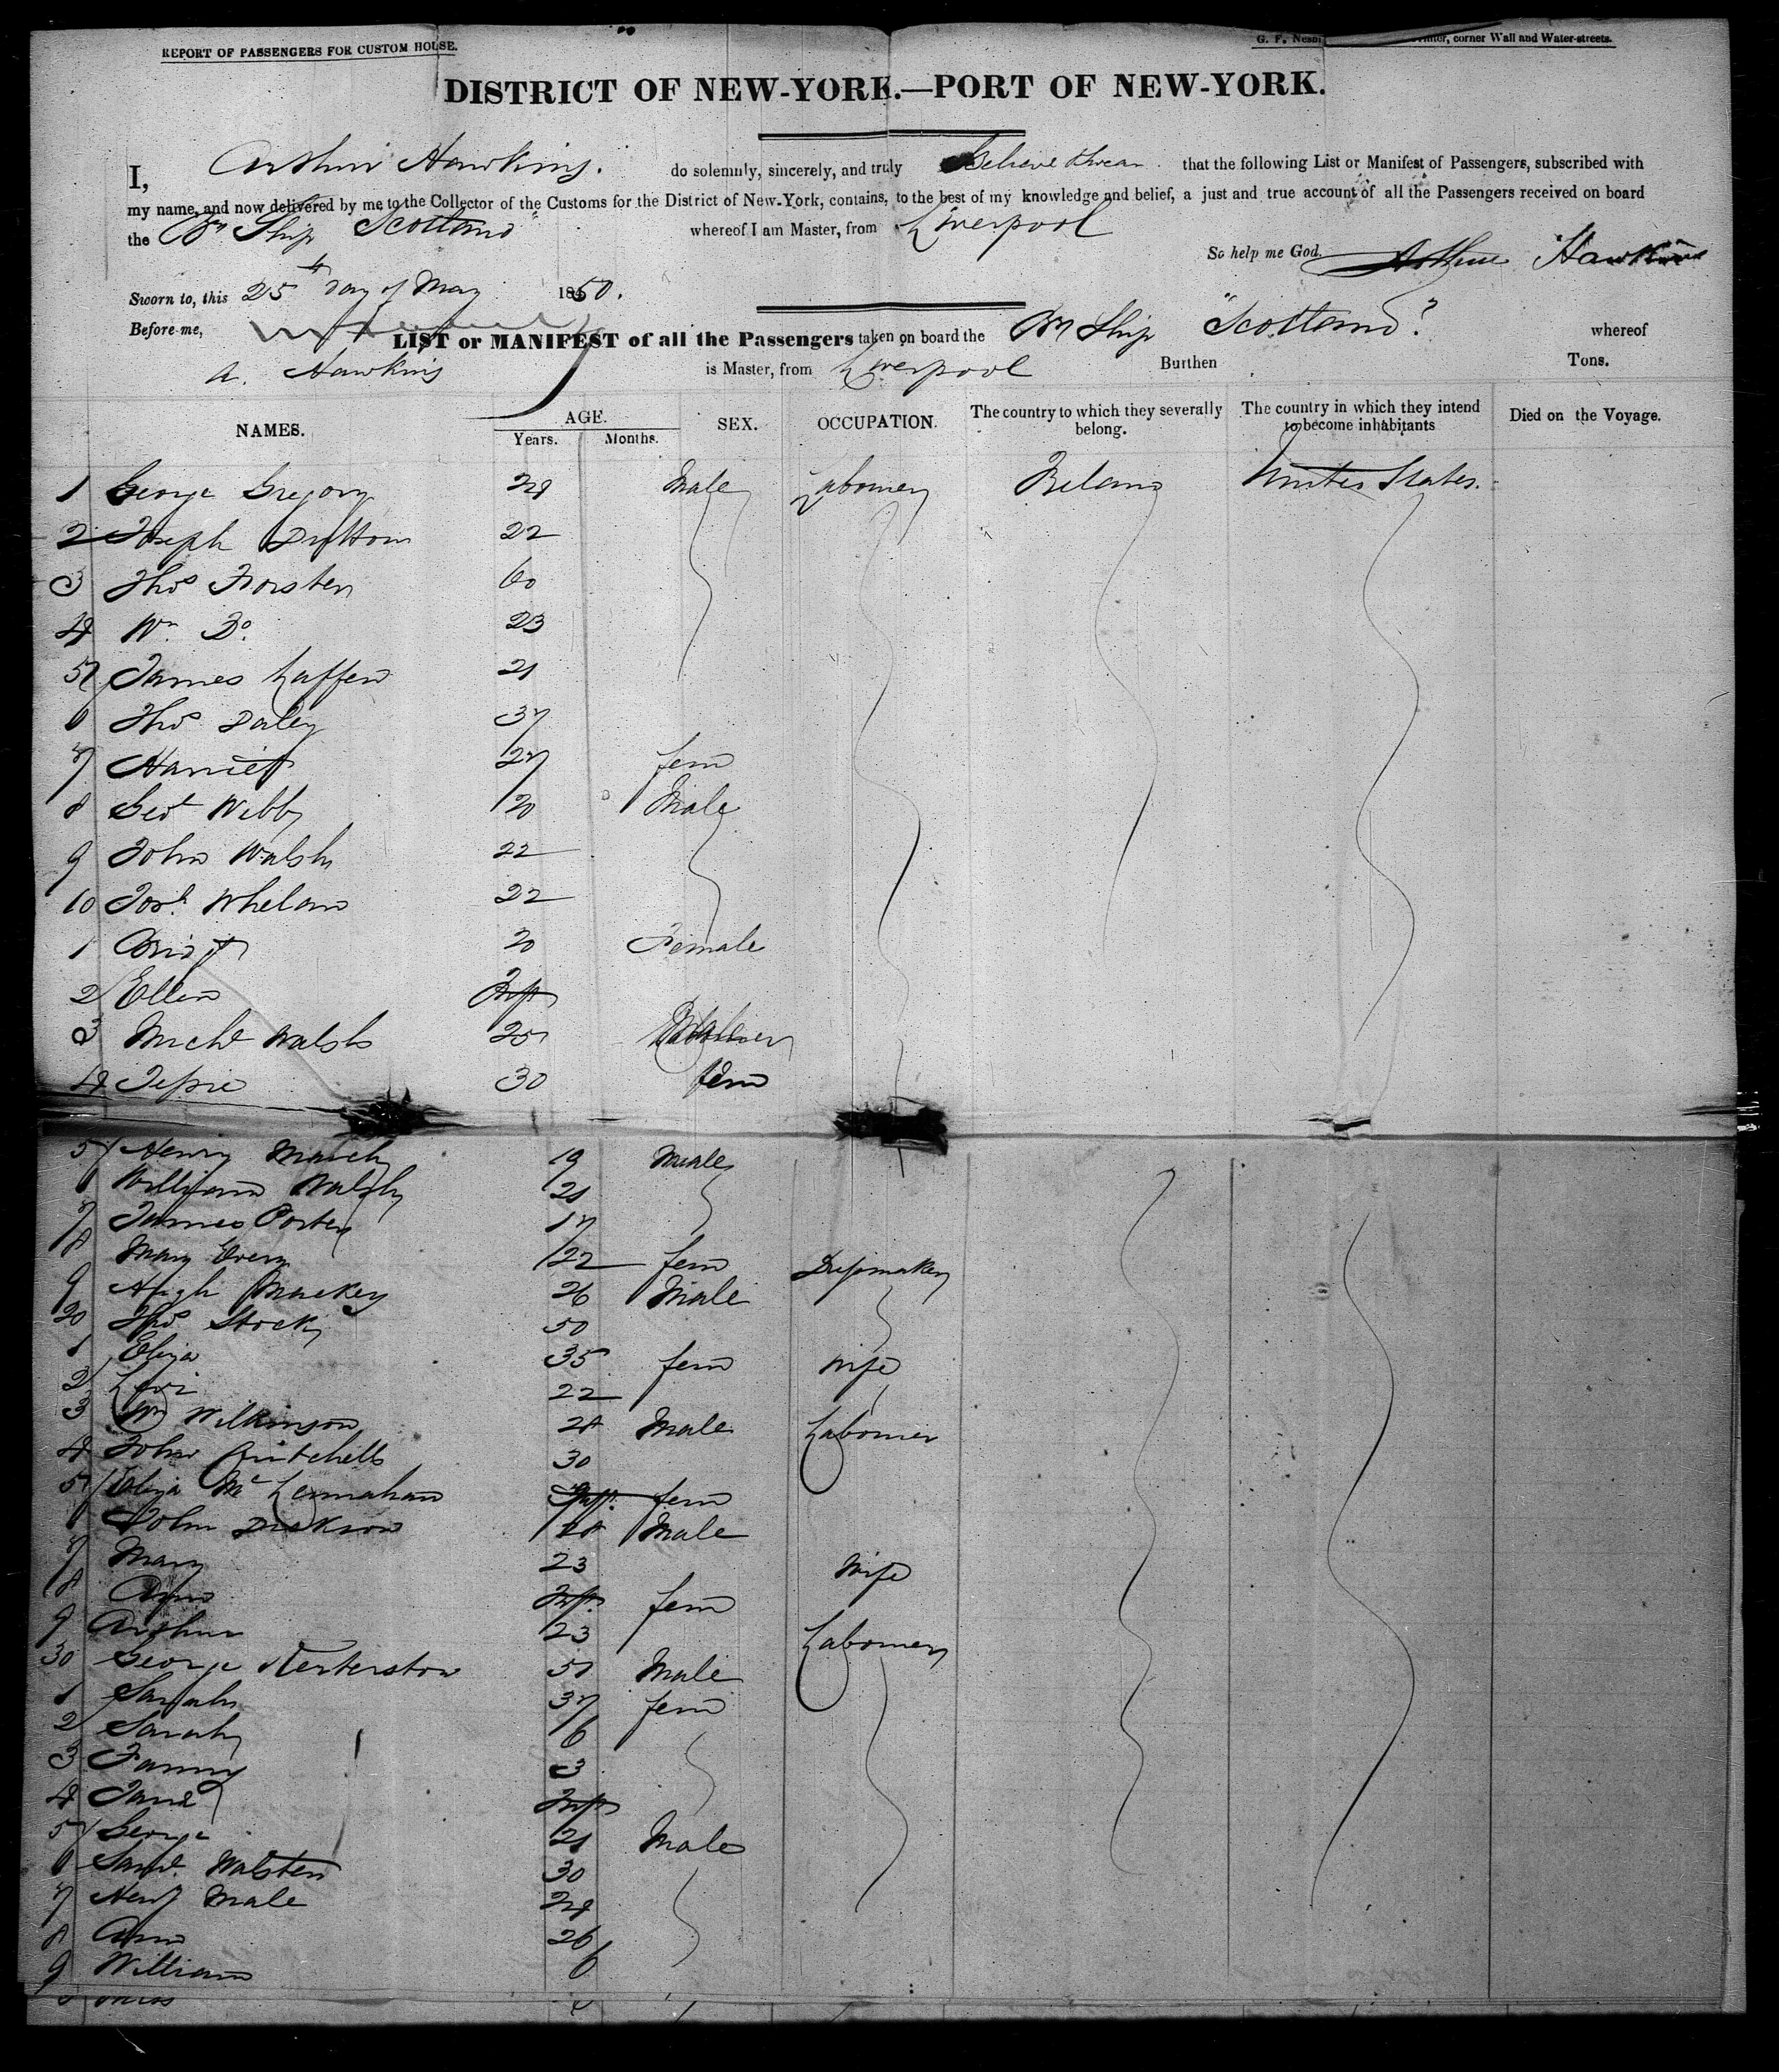 REPORT OF PASSENGERS FOR CUSTOM HOUSE.
G. F. Nesbi , corner Wall and Water-streets.
DISTRICT OF NEW-YORK.—PORT OF NEW-YORK.
I, Arthur Hawkins. do solemnly, sincerely, and truly that the following List or Manifest of Passengers, subscribed with
my name, and now delivered by me to the Collector of the Customs for the District of New-York, contains, to the best of my knowledge and belief, a just and true account of all the Passengers received on board
the Ship Scotland whereof I am Master, from Liverpool
So help me God. Arthur Hawkins
Sworn to, this 25th day of May 1850.
Before me,
LIST or MANIFEST of all the Passengers taken on board the Ship "Scotland" whereof
A. Hawkins is Master, from Liverpool Burthen Tons.
NAMES. AGE. Years. Months. SEX. OCCUPATION. The country to which they severally belong. The country in which they intend to become inhabitants Died on the Voyage.
1 George Gregory 24 Male Labourer Ireland United States.
2 Joseph 22
3 Thos Forster 60
4 Wm Do. 23
5 James Laffen 21
6 Thos Daley 37
7 Harriet 27 fem
8 Geo Webb 20 Male
9 John Walsh 22
10 Jos. Whelan 22
1 20 Female
2 Ellen Inft
3 Michl Walsh 25
4 Jessie 30 fem
5 Henry 19 Male
6 William Walsh 21
7 James Porter 17
8 Mary 22 fem Dressmaker
9 Hugh Mackey 26 Male
20 Thos Stock 50
1 Eliza 35 fem wife
2 Levi 22
3 Wm Wilkinson 24 Male Labourer
4 John 30
5 Eliza Mc Inft. fem
6 John Dickson 24 Male
7 Mary 23 Wife
8 Inft. fem
9 Arthur 23 Labourer
30 George 50 Male
1 Sarah 37 fem
2 Sarah 6
3 Fanny 3
4 Jane Inft
5 George 21 Male
6 Saml. Walsten 30
7 Male 24
8 Ann 26
9 William 6